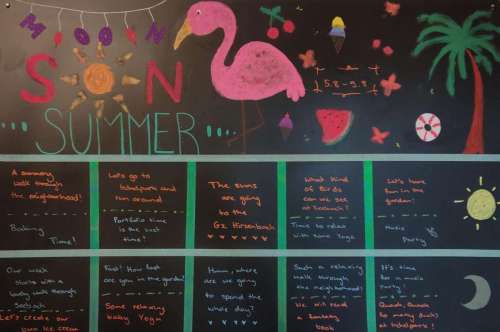 MOON
SUN
...SUMMER...
5.8 - 9.8
A summery
walk through
the neighbourhood!
Baking
Time!
Let's go to
and
run around
Portfolio time
is the best
time!
The suns
are going
to the
GZ Hirzenbach
What kind
of Birds
can we see
at
Time to relax
with some Yoga
Let's have
fun in the
garden!
Music
Party
Our week
starts with a
walk through
Let's create our
own Ice cream
Fast! How fast
are you in the garden!
Some relaxing
baby Yoga
Hmm, where
are we going
to spend the
whole day?
Such a relaxing
walk through
the neighborhood!
We will read
a fantasy
book
It's time
for a
party!
Quack, Quack
to many ducks
at